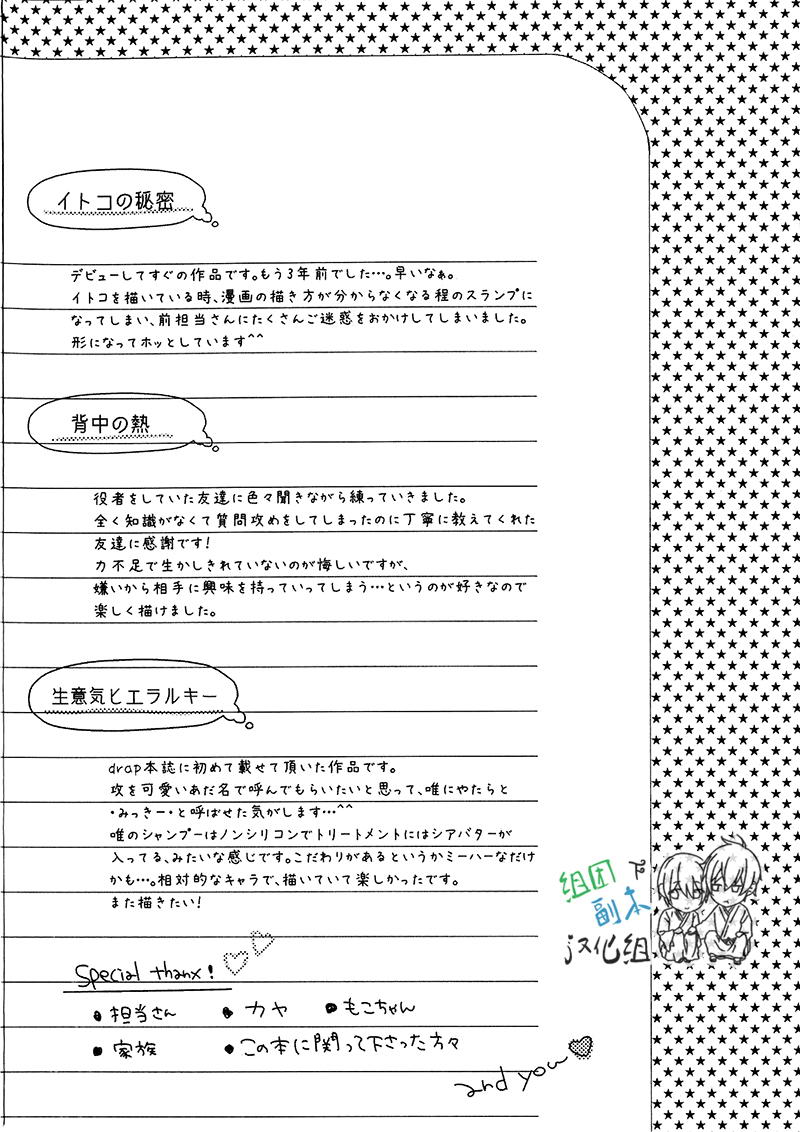 イトコの秘密
デビューしてすぐの作品です。もう3年前でした…。早いなぁ。
イトコを描いている時、漫画の描き方が分からなくなる程のスランプに
なってしまい、前担当さんにたくさんご迷惑をおかけしてしまいました。
形になってホッとしています^^
背中の熱
役者をしていた友達に色々聞きながら練っていきました。
全く知識がなくて質問攻めをしてしまったのに丁寧に教えてくれた
友達に感謝です!
力不足で生かしきれていないのが悔しいですが、
嫌いから相手に興味を持っていってしまう…というのが好きなので
楽しく描けました。
生意気ヒエラルキー
drap本誌に初めて載せて頂いた作品です。
攻を可愛いあだ名で呼んでもらいたいと思って、唯にやたらと
・みっきー・と呼ばせた気がします…^^
唯のシャンプーはノンシリコンでトリートメントにはシアバターが
入ってる、みたいな感じです。こだわりがあるというかミーハーなだけ
かも…。相対的なキャラで、描いていて楽しかったです。
また描きたい!
Special thanx!
• 担当さん • カヤ • もこちゃん
• 家族 • この本に関って下さった方々
and you
组团下
副本
汉化组